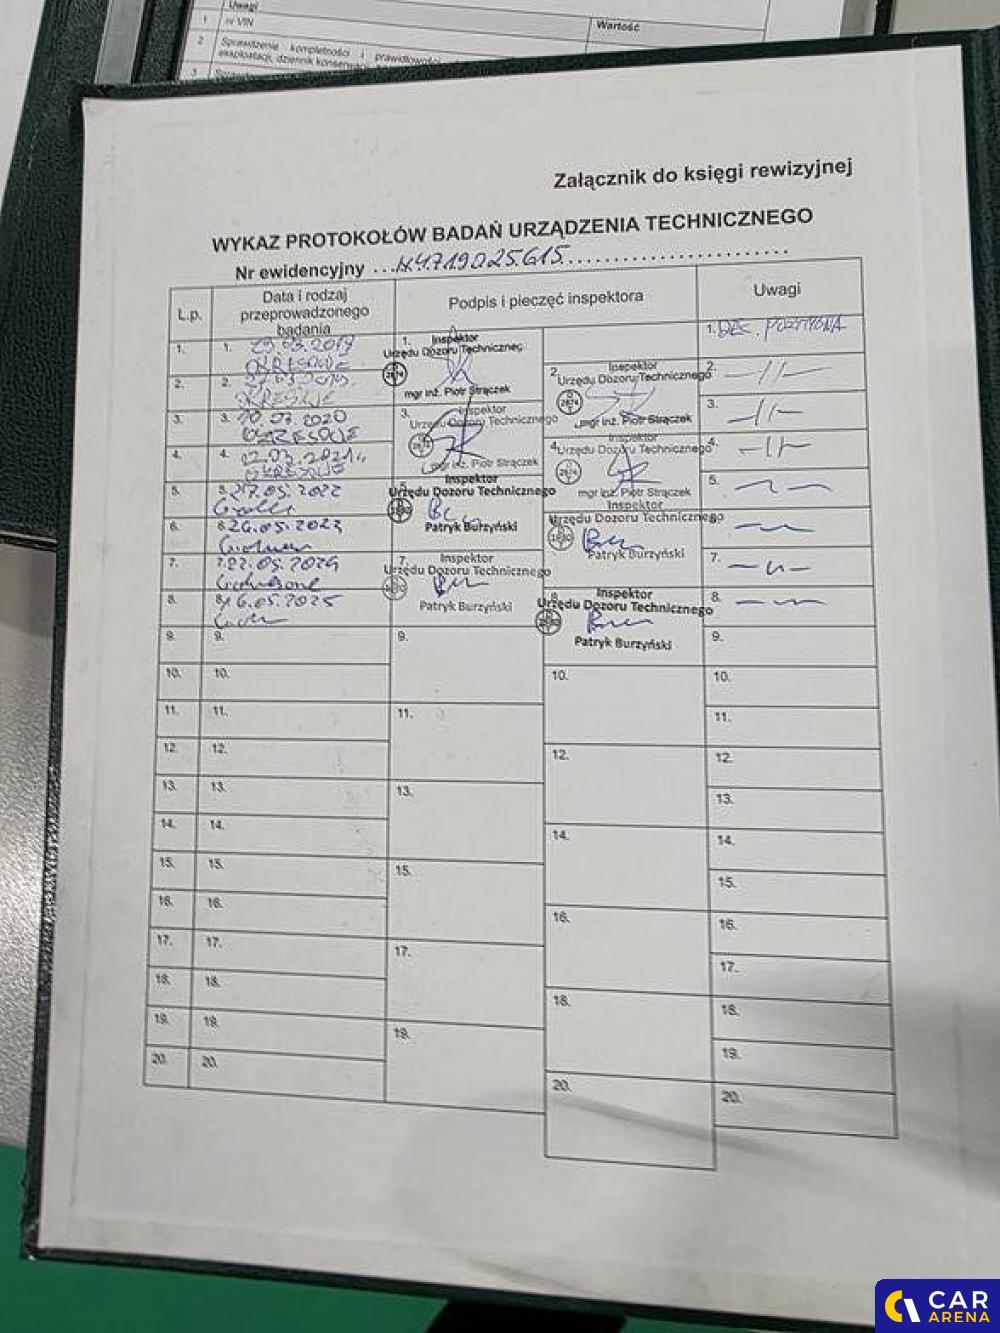 Uwagi
Wartość
1 nr VIN
2 Sprawdzenie kompletności i prawidłowości
eksploatacji, dziennik konserwacji
3
Załącznik do księgi rewizyjnej
WYKAZ PROTOKOŁÓW BADAŃ URZĄDZENIA TECHNICZNEGO
Nr ewidencyjny
L.p.
Data i rodzaj
przeprowadzonego
badania
Podpis i pieczęć inspektora
Uwagi
1. 1. OKRESOWE
1. Inspektor
Urzędu Dozoru Techniczneg
2874
mgr inż. Piotr Strączek
1. DEC. POZYTYWNA
2. 2. OKRESOWE
2. Inspektor
Urzędu Dozoru Technicznego
2874
mgr inż. Piotr Strączek
2. -//-
3. 3. 10.03.2020
OKRESOWE
3. Inspektor
Urzędu Dozoru Technicznego
mgr inż. Piotr Strączek
3. -//-
4. 4. 02.03.2021
OKRESOWE
4. Inspektor
Urzędu Dozoru Technicznego
2874
mgr inż. Piotr Strączek
4. -//-
5. 5. 27.05.2022
Inspektor
Urzędu Dozoru Technicznego
Patryk Burzyński
5.
6. 6. 26.05.2023
Inspektor
Urzędu Dozoru Technicznego
Patryk Burzyński
7. 7. 22.05.2024
7. Inspektor
Urzędu Dozoru Technicznego
Patryk Burzyński
7.
8. 8. 16.05.2025
8. Inspektor
Urzędu Dozoru Technicznego
Patryk Burzyński
8.
9. 9. 9. 9.
10. 10. 10. 10.
11. 11. 11. 11.
12. 12. 12. 12.
13. 13. 13. 13.
14. 14. 14. 14.
15. 15. 15. 15.
16. 16. 16. 16.
17. 17. 17. 17.
18. 18. 18. 18.
19. 19. 19. 19.
20. 20. 20. 20.
CAR
ARENA